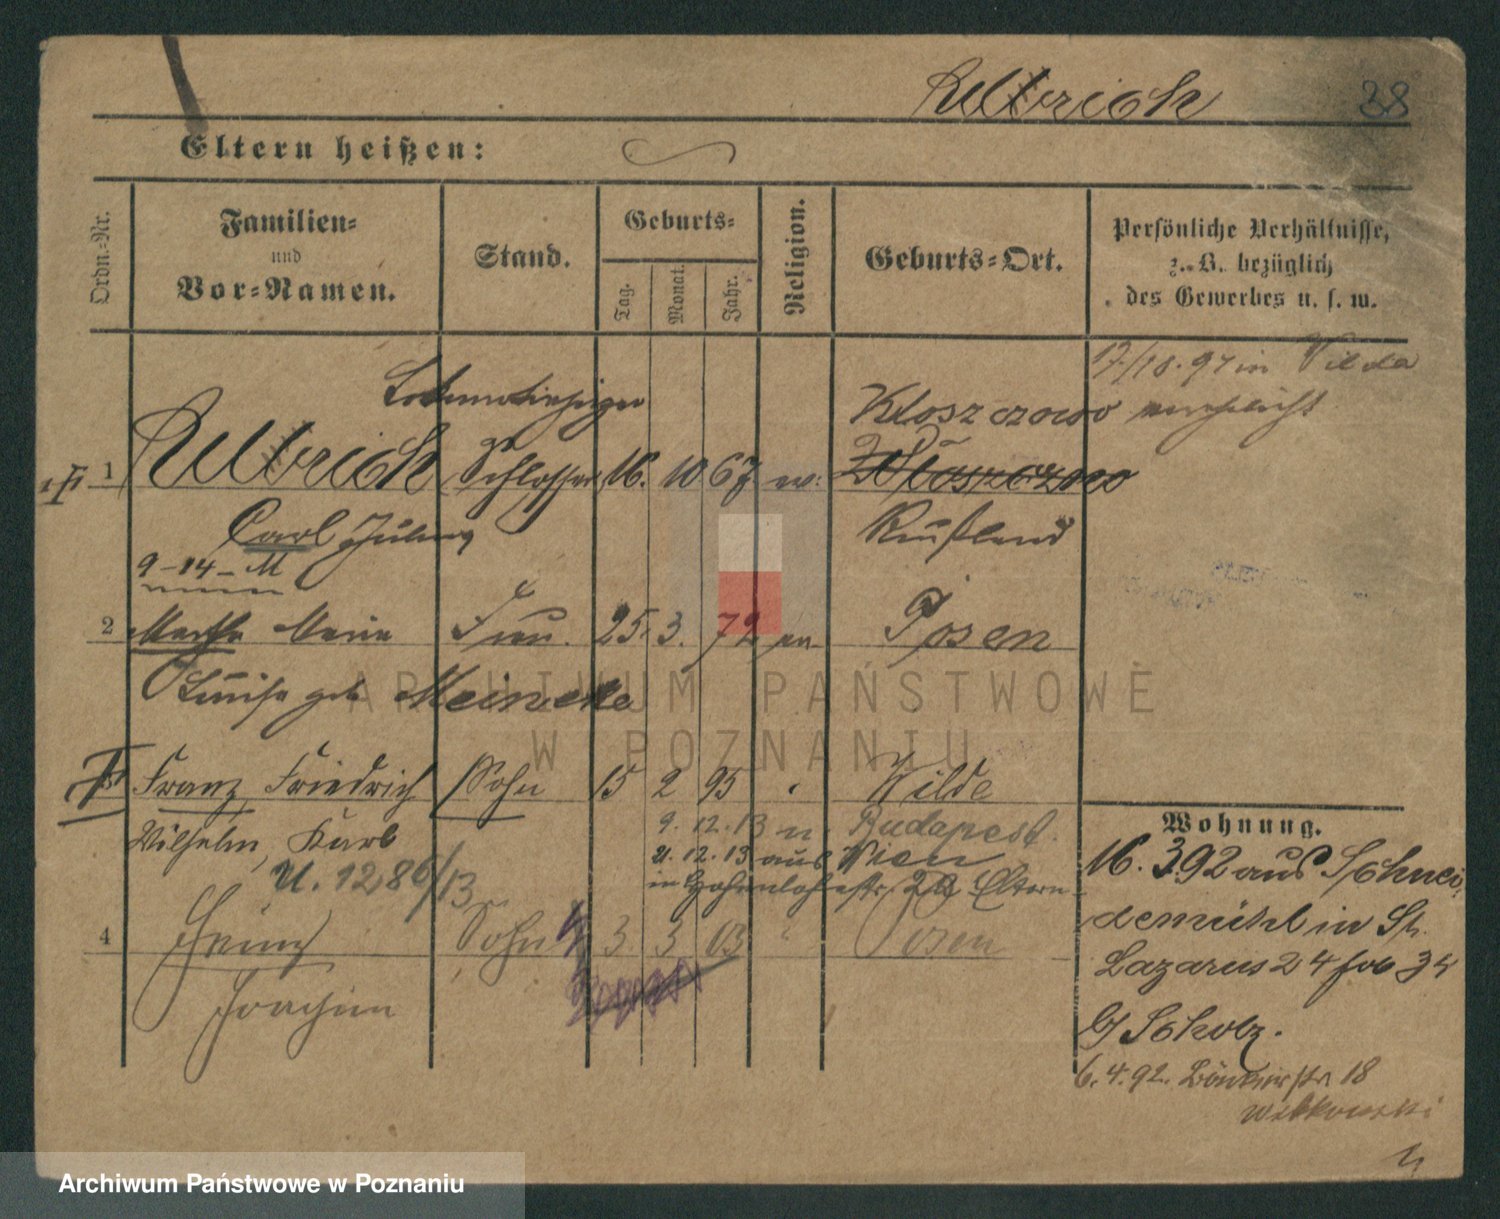 Relbrich 38
Eltern heißen:
Ordn.-Nr.
Familien-
und
Vor-Namen.
Stand.
Geburts-
Tag.
Monat.
Jahr.
Religion.
Geburts-Ort.
Persönliche Verhältnisse,
z. B. bezüglich
des Gewerbes u. s. w.
in Wilda
1 Schlosser 16. 10 67 ev:
Rußland
Carl Julius
9-14-M
2 Martha Marie Frau. 25. 3. 72 ev. Posen
Luise geb Meinecke
Franz Friedrich Sohn 15 2 95 Wilda
Wilhelm, Karl
9. 12. 13 n. Budapest.
U. 1286/13
12. 13 aus Wien
in Hohenlohestr. Eltern
4 Heinz Sohn 3. 3 03 " Posen
Joachim
Wohnung.
16. 3.92 aus Schnei-
demühl in St.
Lazarus 24 fob 34
b/ Scholz.
6. 4. 92. 18
Witkowski
ARCHIWUM PAŃSTWOWE
W POZNANIU
Archiwum Państwowe w Poznaniu